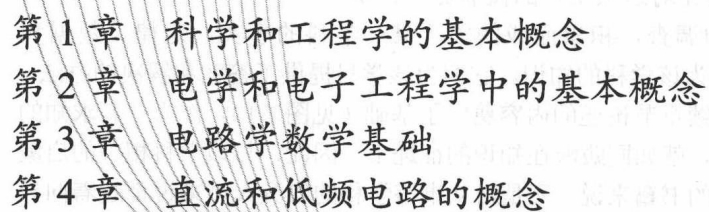 第1章 科学和工程学的基本概念
第2章 电学和电子工程学中的基本概念
第3章 电路学数学基础
第4章 直流和低频电路的概念